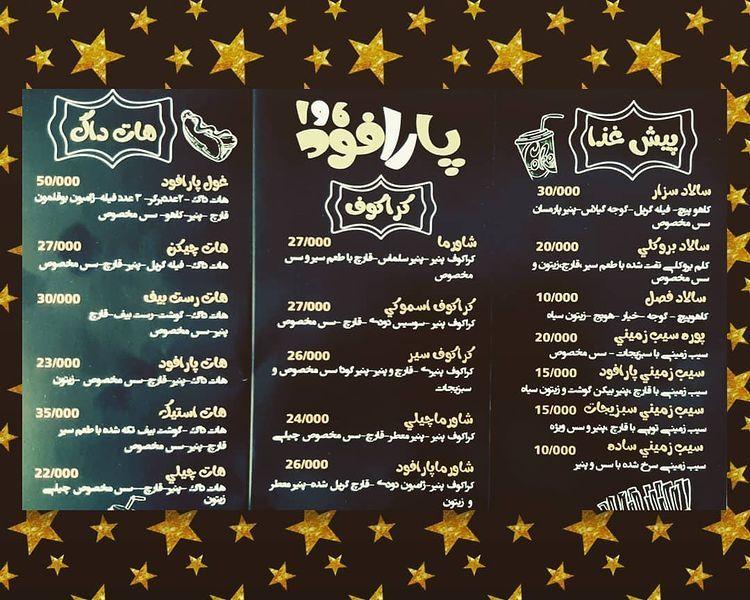 پیش غذا
سالاد سزار 30/000
کاهو پیچ- فیله گریل-گوجه گیلاس-پنیر پارمسان
سس مخصوص
سالاد بروکلی 20/000
کلم بروکلی تفت شده با طعم سیر،قارچ،زیتون و
سس مخصوص
سالاد فصل 10/000
کاهوپیچ - گوجه -خیار - هویج - زیتون سیاه
پوره سیب زمینی 20/000
سیب زمینی با سبزیجات - سس مخصوص
سیب زمینی پارافود 15/000
سیب زمینی با قارچ ،پنیر بیکن گوشت و زیتون سیاه
سیب زمینی سبزیجات 15/000
سیب زمینی تویی با قارچ ،پنیر و سس ویژه
سیب زمینی ساده 10/000
سیب زمینی سرخ شده با سس و پنیر
پارافود ۱۹۶
کراکوف
شاورما 27/000
کراکوف پنیر -پنیر سلماس -قارچ با طعم سیر و سس
مخصوص
کراکوف اسموکی 27/000
کراکوف پنیر -سوسیس دودی - قارچ -سس مخصوص
کراکوف سیر 26/000
کراکوف پنیری - قارچ و پنیر-پنیر گودا سس مخصوص و
سبزیجات
شاورما چیلی 24/000
کراکوف پنیر -پنیر معطر-قارچ-سس مخصوص چیلی
شاورما پارافود 26/000
کراکوف پنیر-ژامبون دودی - قارچ گریل شده-پنیر معطر
و زیتون
هات داگ
غول پارافود 50/000
هات داگ - ۲عددبرگر- ۳ عدد فیله-ژامبون بوقلمون
قارچ -پنیر-کاهو-سس مخصوص
هات چیکن 27/000
هات داگ- فیله گریل -پنیر-قارچ-سس مخصوص
هات رست بیف 30/000
هات داگ- گوشت-رست بیف- قارچ
پنیر-سس مخصوص
هات پارافود 23/000
هات داگ-پنیر-قارچ-سس مخصوص -زیتون
هات استیک 35/000
هات داگ-گوشت بیف تکه شده با طعم سیر
قارچ-پنیر-سس مخصوص
هات چیلی 22/000
هات داگ -پنیر-قارچ-سس مخصوص چیلی
زیتون